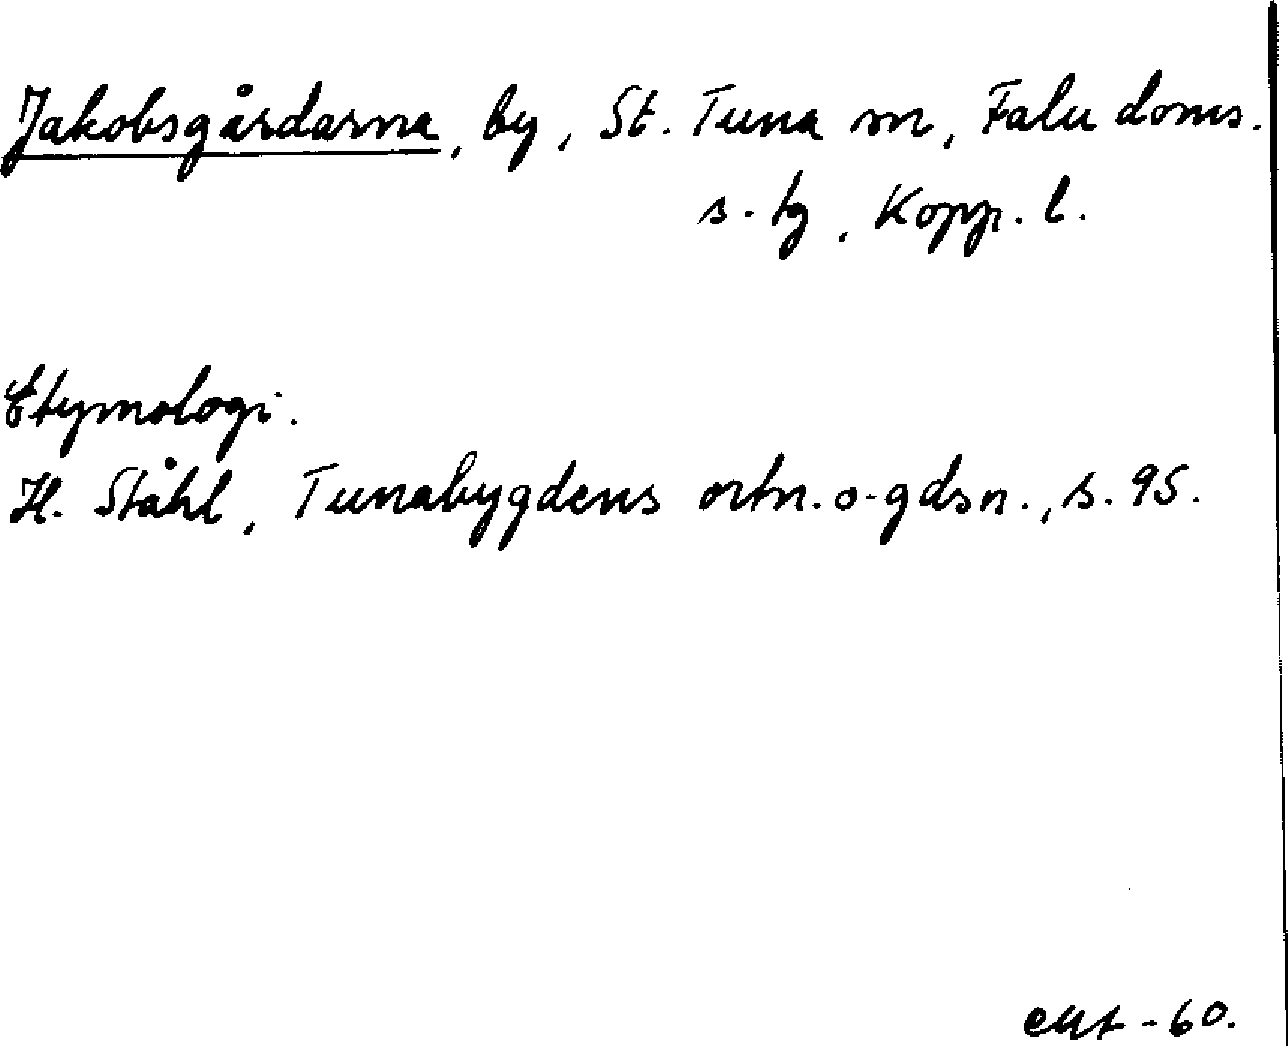 Jakobsgårdarna, by, St. Tuna sn, Falu doms.
s. tg, Kopp. l.
Etymologi.
H. Ståhl, Tunabygdens ortn. o. gdsn., s. 95.
-60.